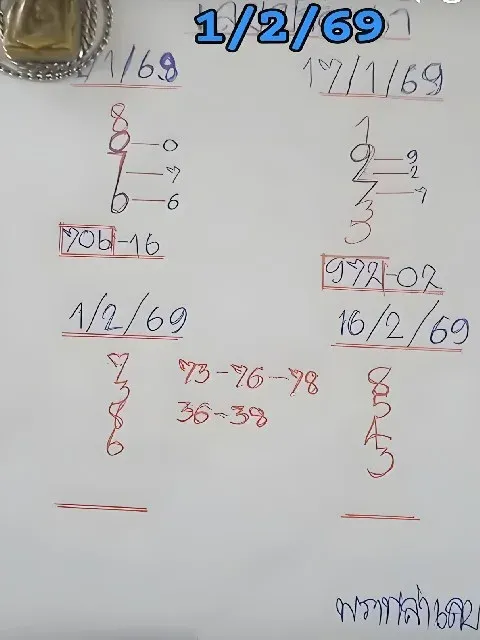 1/2/69
/1/68
17/1/69
8
0 - 0
7 - 7
6 - 6
706 - 16
1
9 - 9
2 - 2
7 - 7
3
5
972 - 02
1/2/69
16/2/69
7
3
8
6
73 - 76 - 78
36 - 38
8
5
4
3